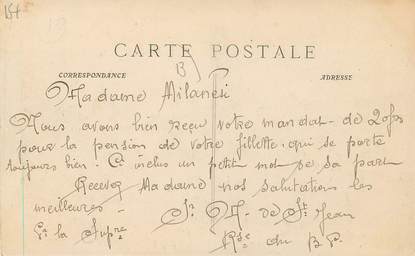 154
CARTE POSTALE
CORRESPONDANCE
ADRESSE
Madame Milanesi
Nous avons bien reçu votre mandat de 20frs
pour la pension de votre fillette, qui se porte
toujours bien! Ci inclus un petit mot de sa part
Recevez Madame nos salutations les
meilleures -
Sr M. de St Jean
Pr la Supre
Rse du B.P.